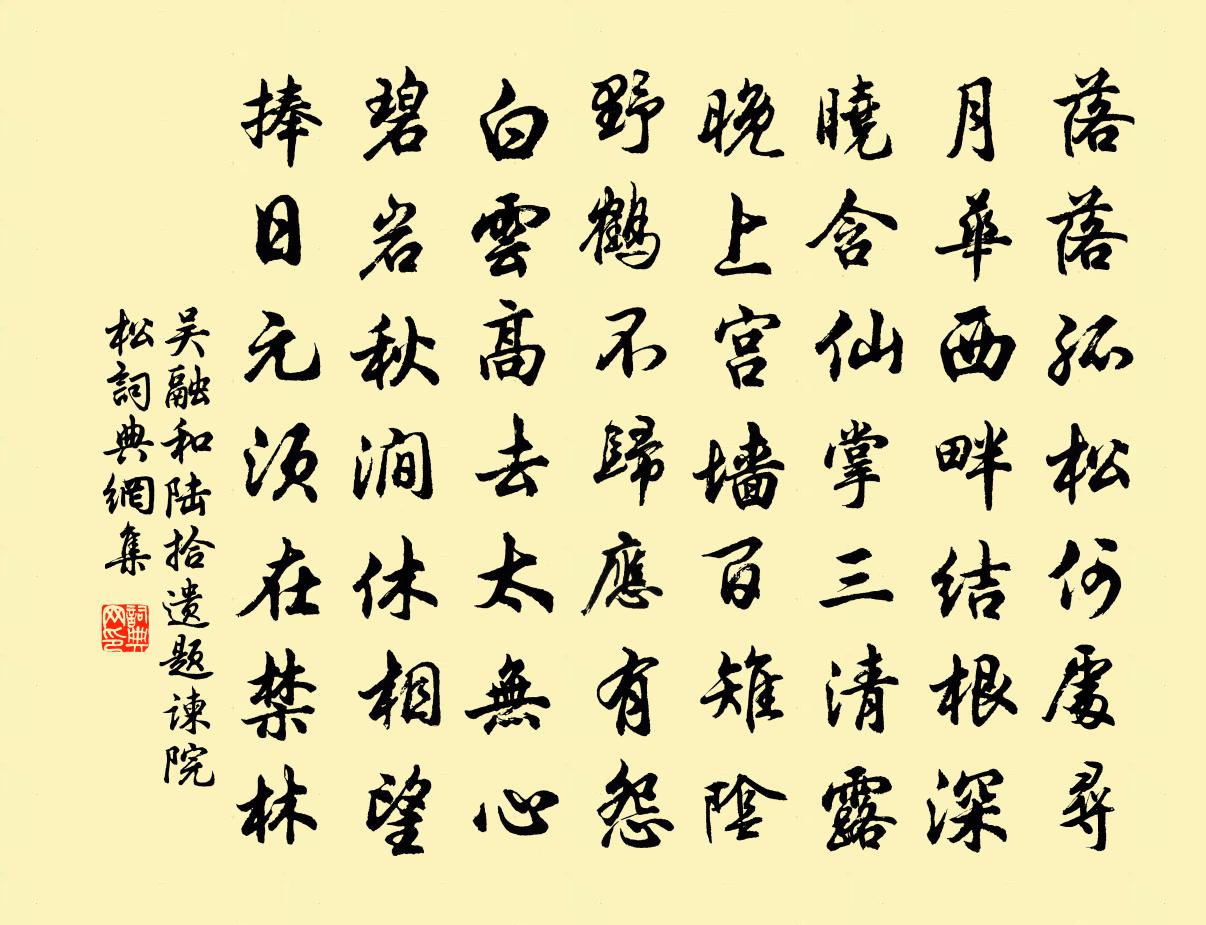 落落孤松何處尋
月華西畔結根深
曉含仙掌三清露
晚上宮墙百雉陰
野鶴不歸應有怨
白雲高去太無心
碧岩秋澗休相望
捧日元須在禁林
吴融和陆拾遗題諫院
松詞典網集
詞典网印